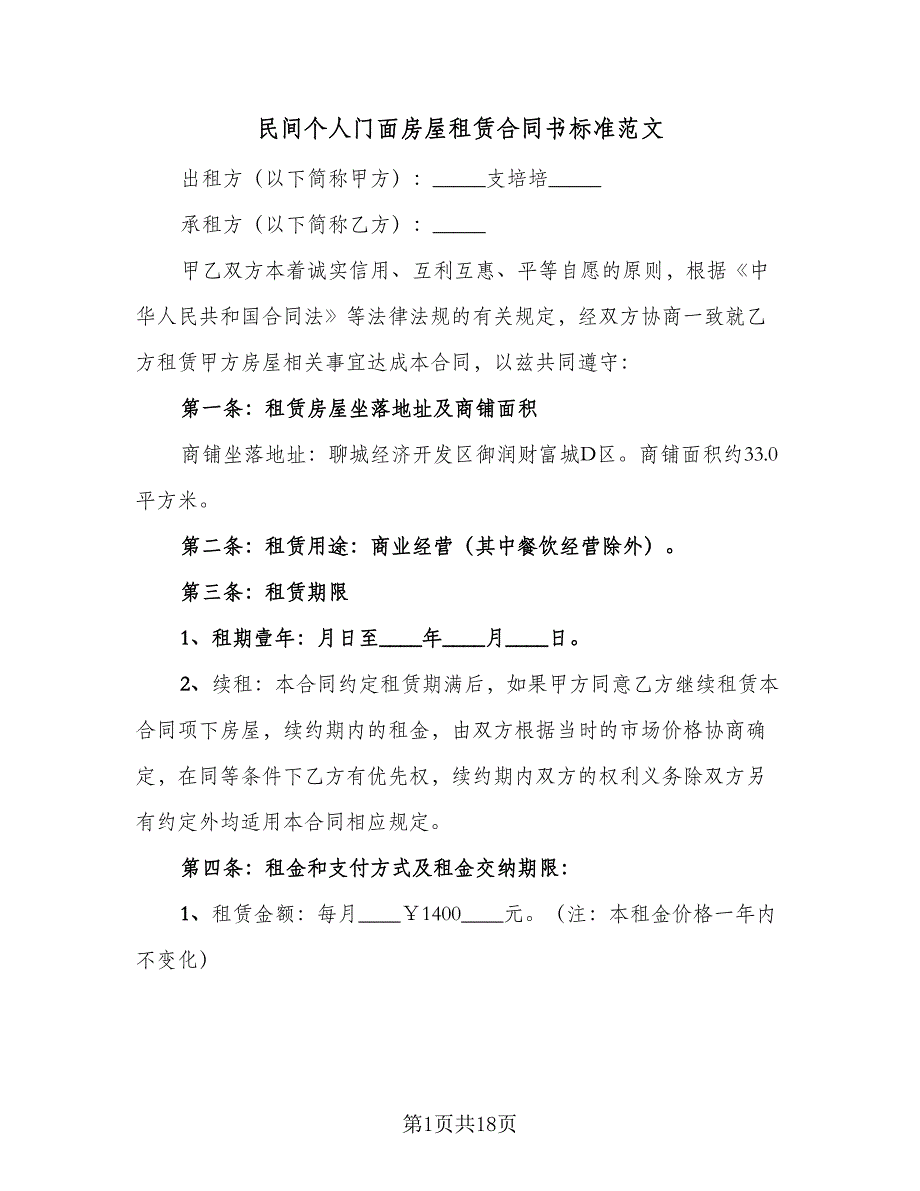 民间个人门面房屋租赁合同书标准范文
出租方（以下简称甲方）：_____支培培_____
承租方（以下简称乙方）：_____
甲乙双方本着诚实信用、互利互惠、平等自愿的原则，根据《中
华人民共和国合同法》等法律法规的有关规定，经双方协商一致就乙
方租赁甲方房屋相关事宜达成本合同，以兹共同遵守：
第一条：租赁房屋坐落地址及商铺面积
商铺坐落地址：聊城经济开发区御润财富城D区。商铺面积约33.0
平方米。
第二条：租赁用途：商业经营（其中餐饮经营除外）。
第三条：租赁期限
1、租期壹年：月日至____年____月____日。
2、续租：本合同约定租赁期满后，如果甲方同意乙方继续租赁本
合同项下房屋，续约期内的租金，由双方根据当时的市场价格协商确
定，在同等条件下乙方有优先权，续约期内双方的权利义务除双方另
有约定外均适用本合同相应规定。
第四条：租金和支付方式及租金交纳期限：
1、租赁金额：每月____￥1400____元。（注：本租金价格一年内
不变化）
第1页共18页